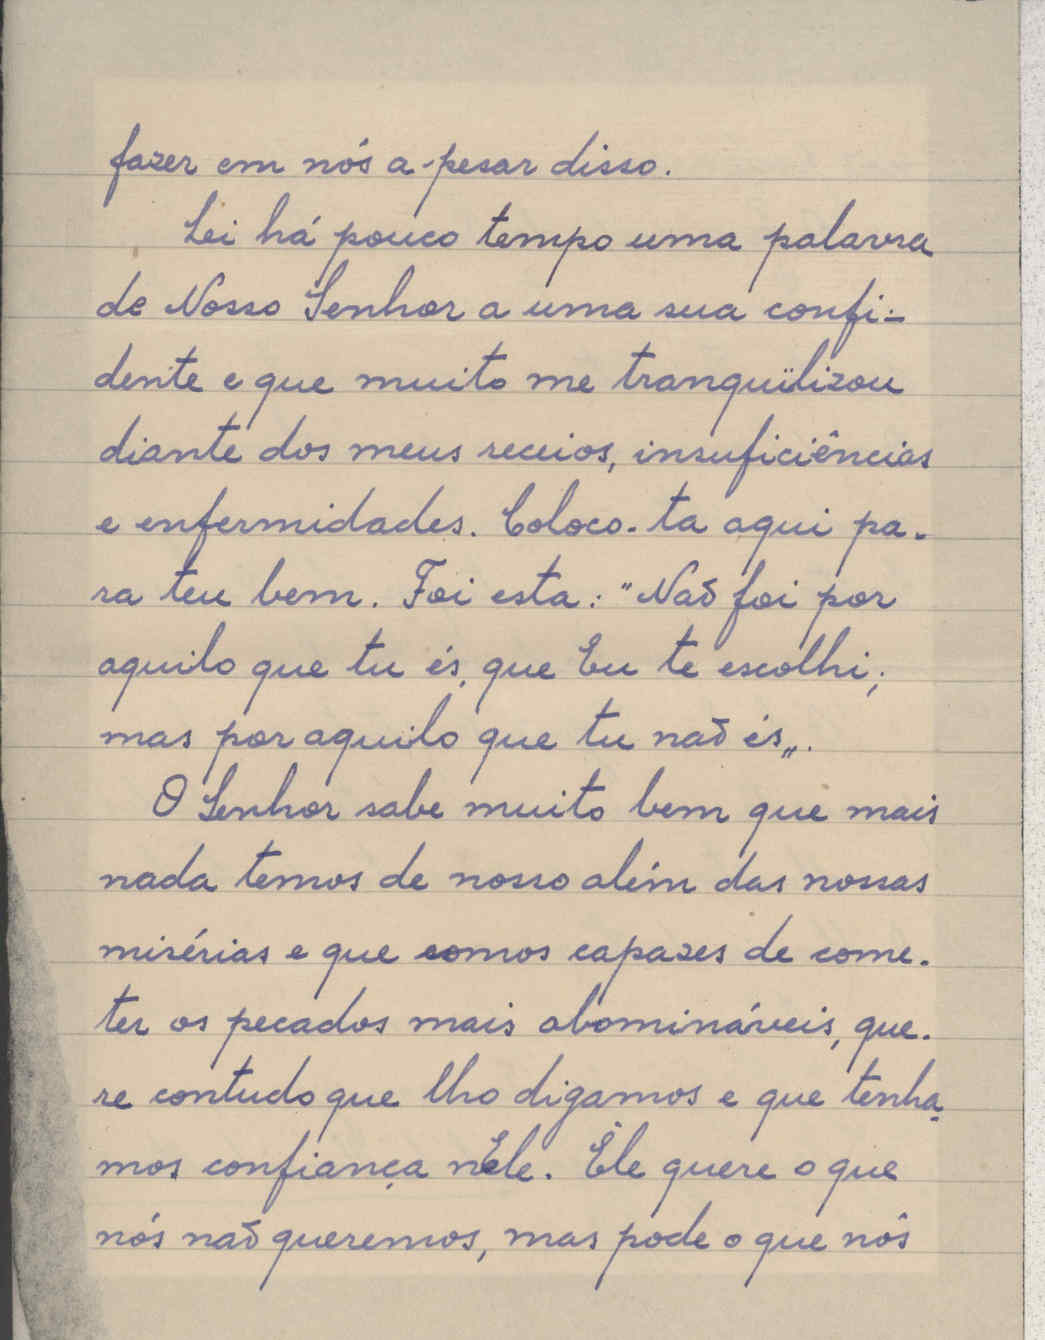 fazer em nós a-pesar disso.
Lei há pouco tempo uma palavra
de Nosso Senhor a uma sua confi-
dente e que muito me tranqüilizou
diante dos meus receios, insuficiências
e enfermidades. Coloco-ta aqui pa-
ra teu bem. Foi esta: "Não foi por
aquilo que tu és, que Eu te escolhi;
mas por aquilo que tu não és„.
O Senhor sabe muito bem que mais
nada temos de nosso além das nossas
misérias e que somos capazes de come-
ter os pecados mais abomináveis, que-
re contudo que lho digamos e que tenha-
mos confiança nEle. Êle quere o que
nós não queremos, mas pode o que nós